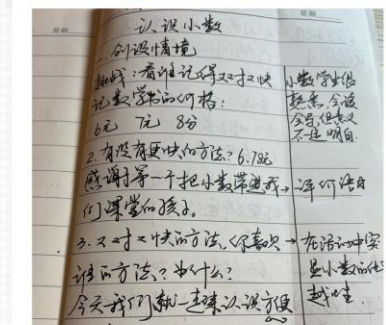 星期
星期
认识小数
一、创设情境
挑战：看谁记得又对又快
记数学书的价格：
6元 7元 8分
2. 有没有更快的方法？6.78元
感谢第一个把小数带进我
们课堂的孩子。
3. 又对又快的方法，你喜欢
谁的方法？为什么？
今天我们就一起来认识方便
小数学生很
熟悉，会读
会写，但意义
不太明白
→评价语
→在活动中突
显小数的优
越性